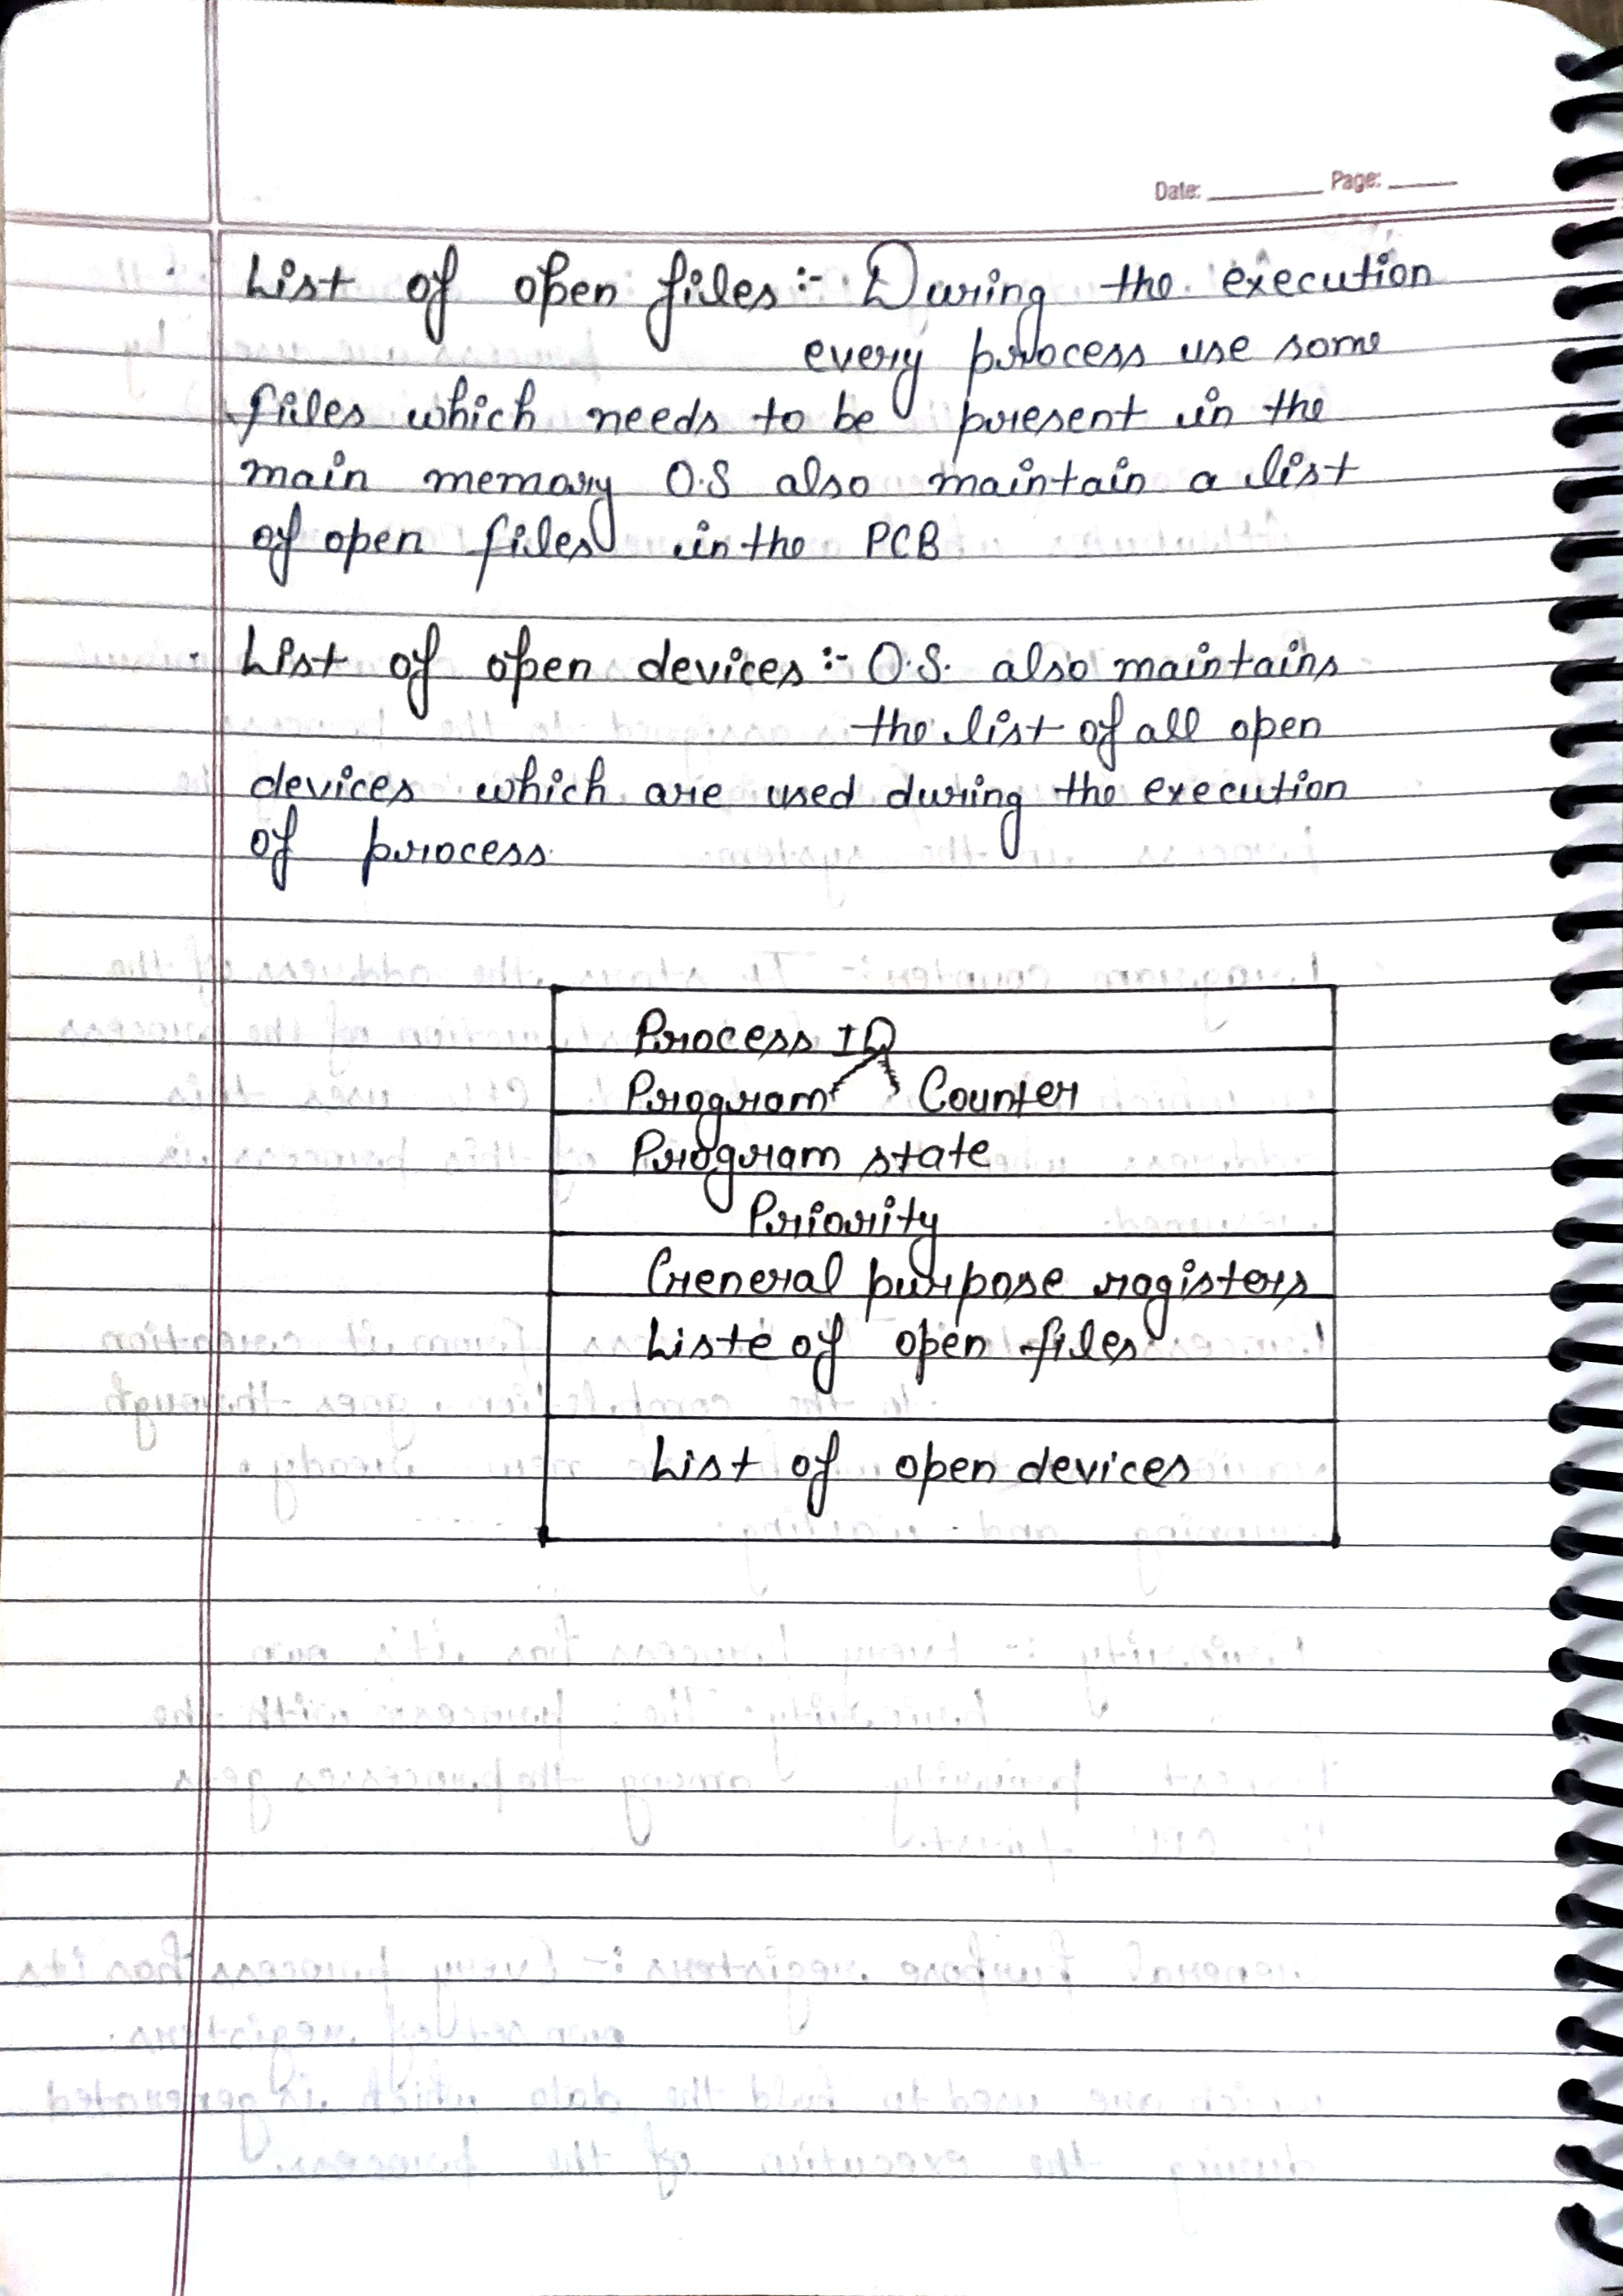 Date: Page:
List of open files :- During the execution
every process use some
files which needs to be present in the
main memory O.S also maintain a list
of open files in the PCB
List of open devices :- O.S. also maintains
the list of all open
devices which are used during the execution
of process.
Process ID
Program Counter
Program state
Priority
General purpose ragisters
Liste of open files
List of open devices